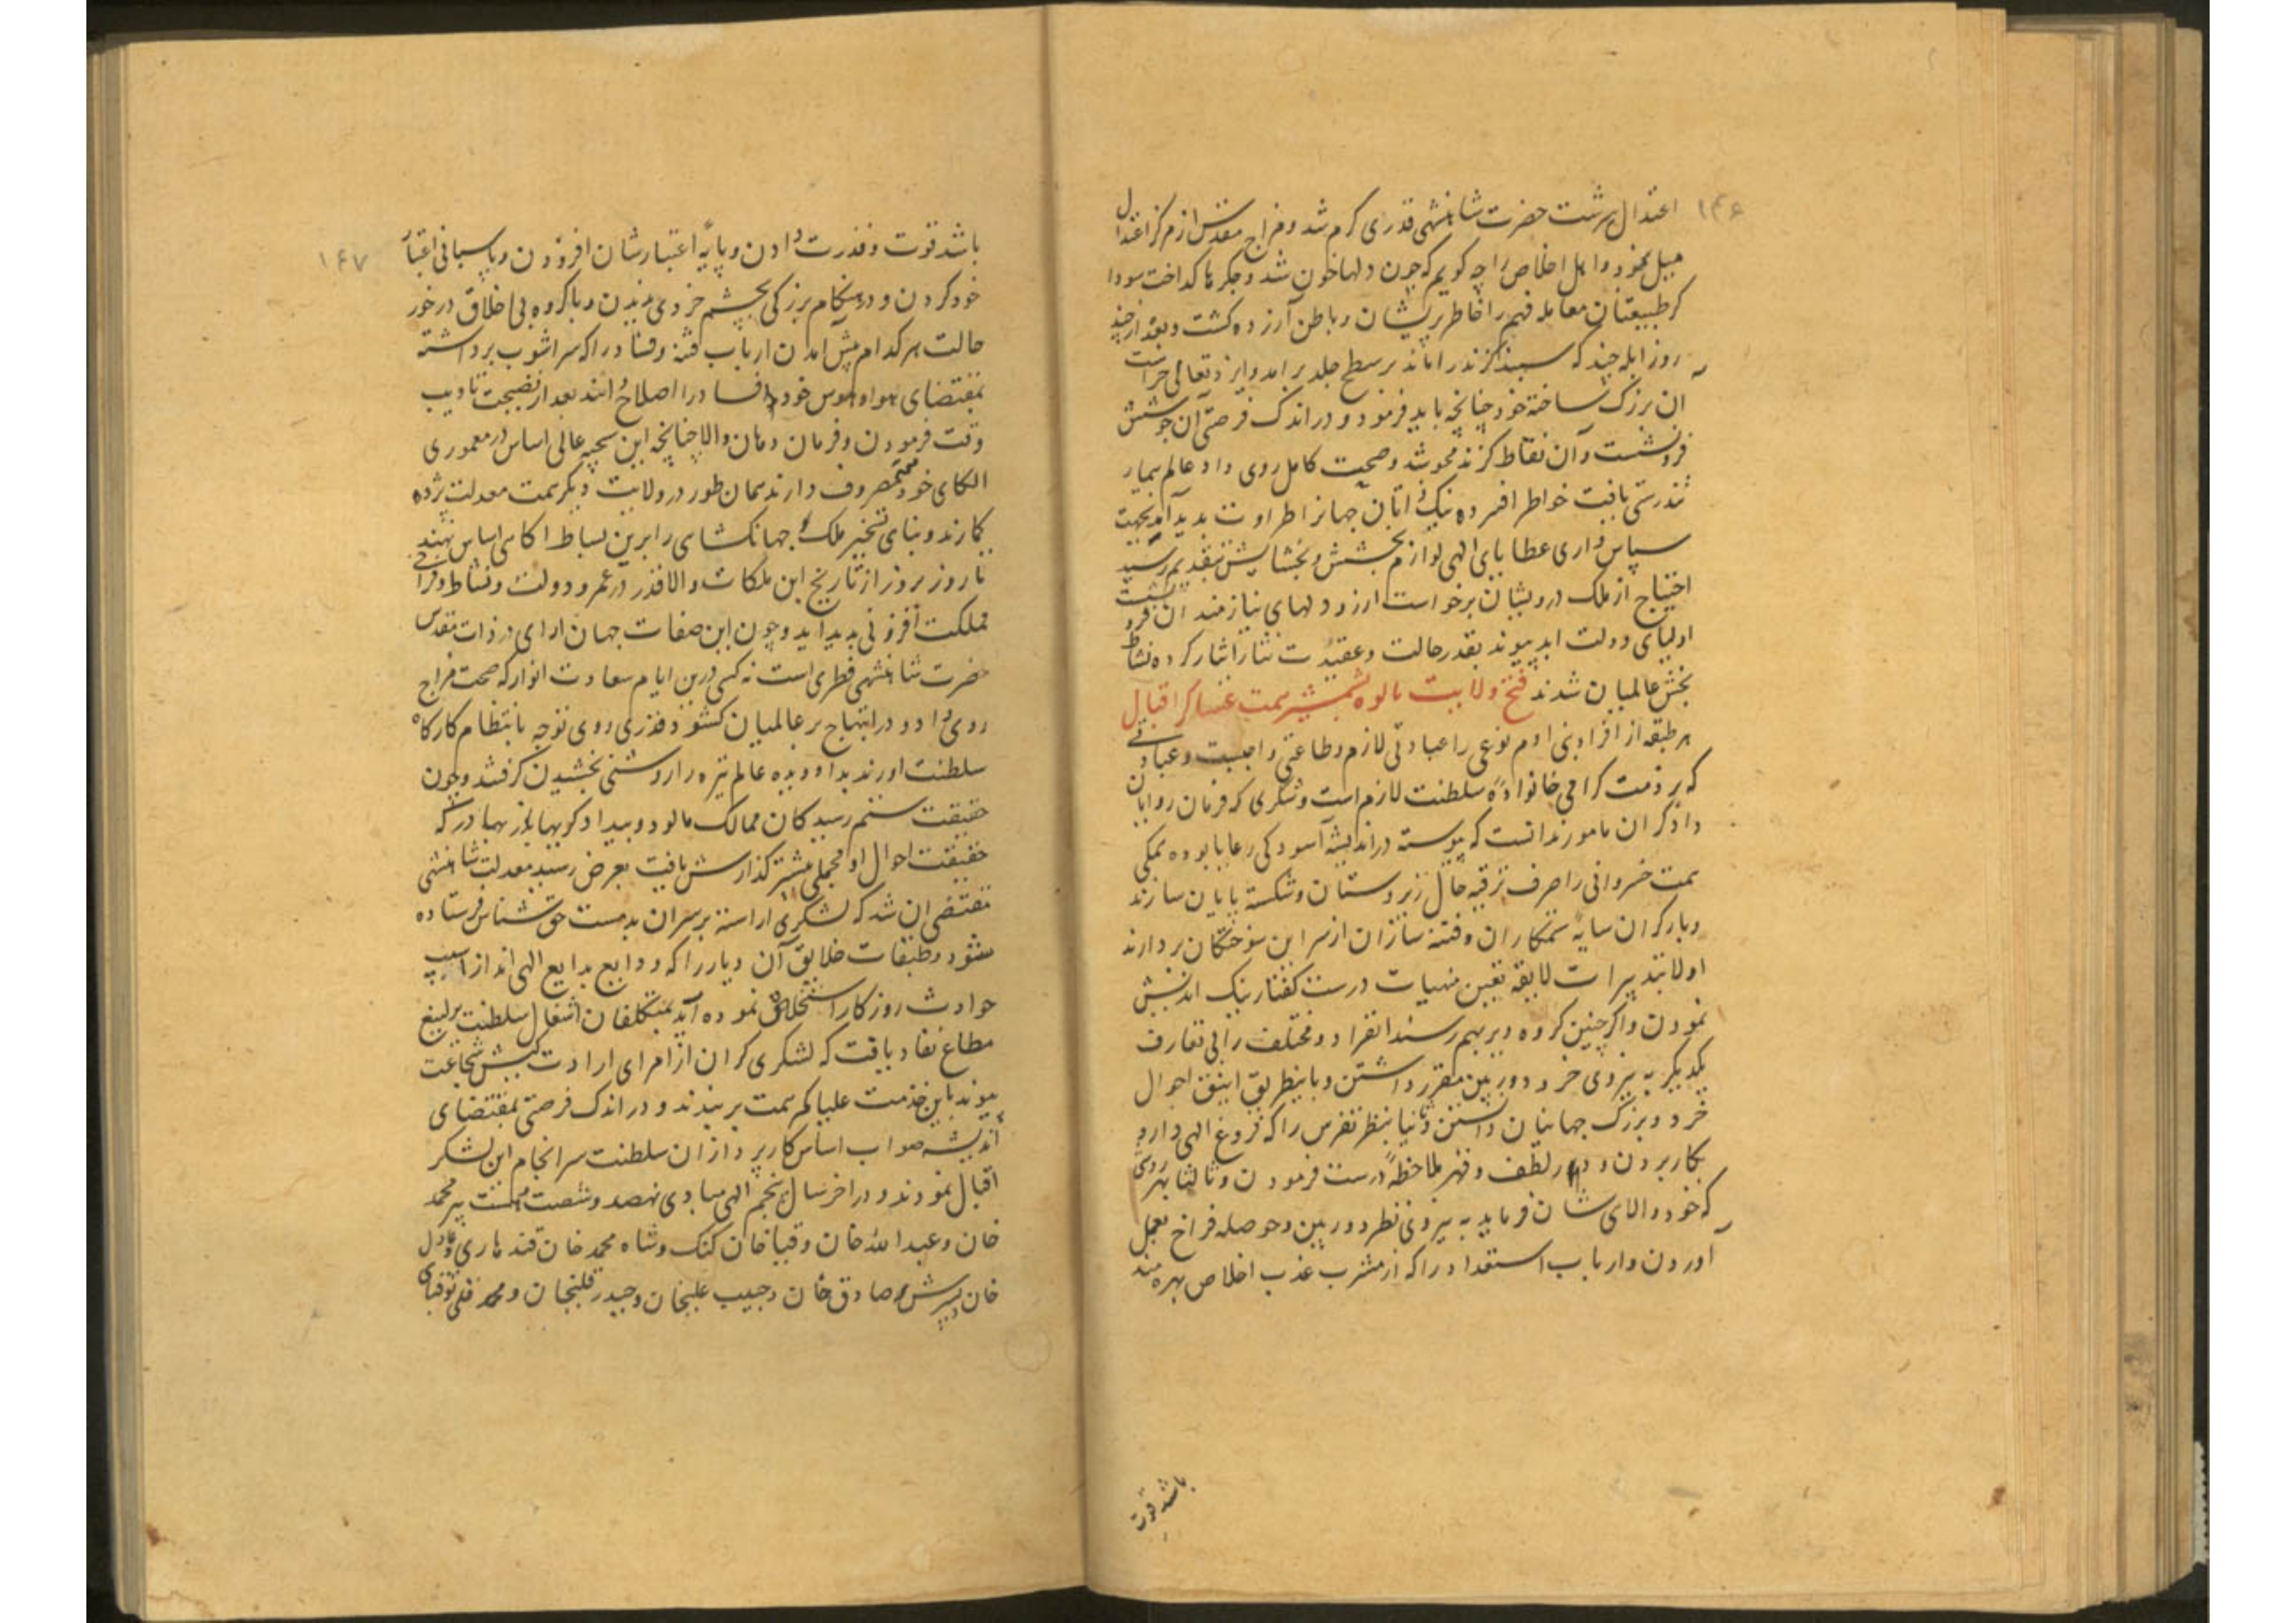 ۱۴۶
اعتدال سرشت حضرت شاهنشهی قدری کرم شد و مزاج مقدس از مرکز اعتدال
میل نمود و اهل اخلاص را چه کویم که چون دلها خون شد و جکرها کداخت سودا
کر طبیعتان معامله فهم را خاطر پریشان و باطن آزرده کشت و بعد از چند
روز ابله چند که سپند کزند را ماند بر سطح جلد برامد و ایزد تعالی حراست
ان بزرک ساخته خود چنانچه باید فرمود و در اندک فرصتی آن جوشش
فرو نشست و آن نقاط کزند محو شد و صحت کامل روی داد عالم بیمار
تندرستی یافت خواطر افسرده نیک ذاتان جهانرا طراوت بدید آمد بجهت
سپاس داری عطایای الهی لوازم بخشش و بخشایش بتقدیم رسید
احتیاج از ملک درویشان برخواست ارزو دلهای نیازمند ان فرو نشست
اولیای دولت ابد پیوند بقدر حالت و عقیدت نثار ایثار کرده نشاط
بخش عالمیان شدند فتح ولایت مالوه بشمشیر همت عساکر اقبال
هر طبقه از افراد بنی ادم نوعی را عبادتی لازم و طاعتی واجبست و عبادتی
که بر ذمت کرامی خانواده سلطنت لازم است و شکری که فرمان روایان
دادکران مامورند انست که پیوسته در اندیشه آسودکی رعایا بوده بمکی
همت خسروانی را صرف ترفیه حال زیردستان و شکسته پایان سازند
و بار کران سایه ستمکاران و فتنه سازان از سر این سوختکان بردارند
اولا بتدبیرات لایقه تعیین منهیات درست کفتار نیک اندیش
نمودن و اکر چنین کروه دیر بهم رسند انفراد و مختلف را بی تعارف
یکدیکر به نیروی خرد دوربین مقرر داشتن و باینطریق انیق احوال
خرد و بزرک جهانیان دانستن و ثانیا بنظر تفرس را که فروغ الهی دارد
بکار بردن و در لطف و قهر ملاحظه درست فرمودن و ثالثا بهر روی
که خود والای شان فرماید به نیروی نظر دوربین و حوصله فراخ بعمل
آوردن و ارباب استعداد را که از مشرب عذب اخلاص بهره مند
باشد قوت
۱۴۷
باشد قوت و قدرت دادن و پایه اعتبار شان افزودن و پاسبانی اعتبار
خود کردن و در هنکام بزرکی بچشم خردی ندیدن و با کروه بی اخلاق در خور
حالت هر کدام پیش امدن ارباب فتنه و فساد را که سر اشوب برداشته
بمقتضای هوا و هوس خود افساد را اصلاح دانند بعد از نصیحت تادیب
وقت فرمودن و فرمان دهان والا چنانچه این سجیه عالی اساس در معموری
الکای خود مصروف دارند همان طور در ولایت دیکر همت معدلت پژوه
کمارند و بنای تسخیر ملک و جهانکشای را برین بساط اکاهی اساس نهند
تا روز بروز از تاریخ این ملکات والا قدر در عمر و دولت و نشاط و فراخی
مملکت افزونی بدید اید و چون این صفات جهان ارای در ذات مقدس
حضرت شاهنشهی فطری است نه کسی درین ایام سعادت انوار که صحت مزاج
روی داد و در ابتهاج بر عالمیان کشود قدری روی توجه بانتظام کارکاه
سلطنت اورند بدا و دیده عالم تیره را روشنی بخشیدن کرفتند و چون
حقیقت ستم رسیدکان ممالک مالوه و بیدادکریهای باز بهادر که
حقیقت احوال او مجملی پیشتر کذارش یافت بعرض رسید معدلت شاهنشهی
مقتضی ان شد که لشکری اراسته بر سر ان بدمست حق ناشناس فرستاده
شود و طبقات خلایق آن دیار را که ودایع بدایع الهی اند از اسیب
حوادث روزکار استخلاص نموده آید بمتکلفان اشغال سلطنت یرلیغ
مطاع نفاد یافت که لشکری کران از امرای ارادت کیش شجاعت
پیوند باین خدمت علیا کمر همت بربندند و در اندک فرصتی بمقتضای
اندیشه صواب اساس کارپردازان سلطنت سرانجام این لشکر
اقبال نمودند و در اخر سال پنجم الهی مبادی نهصد و شصت و هشت پیر محمد
خان و عبدالله خان و قیا خان کنک و شاه محمد خان قندهاری و عادل
خان پسرش و صادق خان و حبیب علیخان و حیدر قلیخان و محمد قلی توقبای